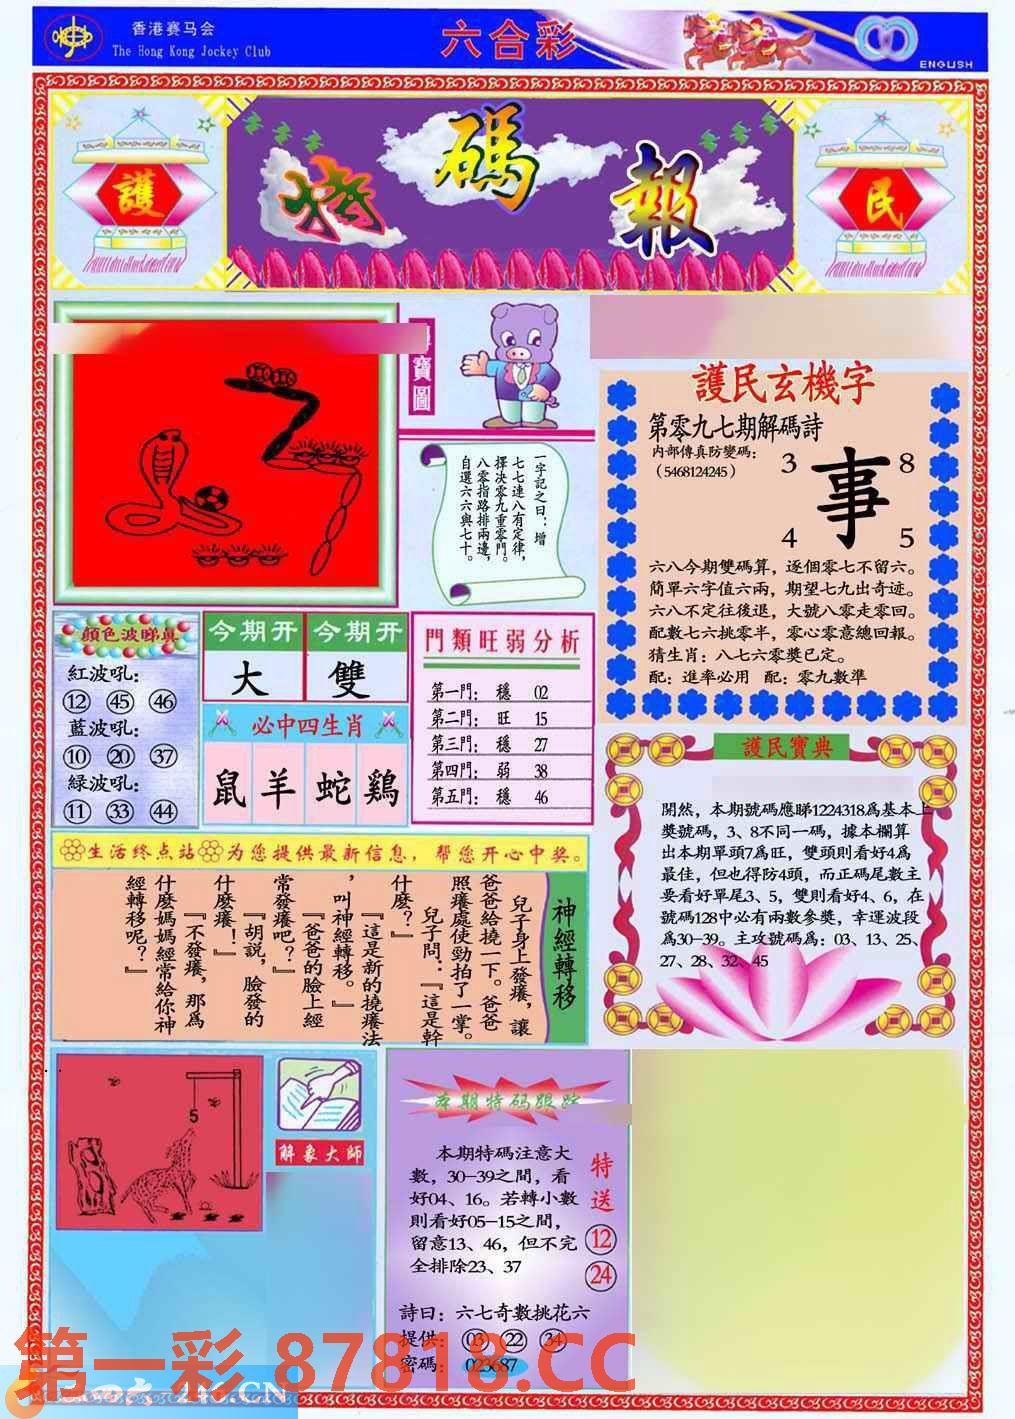 香港赛马会
The Hong Kong Jockey Club
六合彩
ENGLISH
護
特碼報
民
尋寶圖
一字記之曰：增
七七連八有定律，
擇决零九重零門。
八零指路排兩邊，
自選六六與七十。
護民玄機字
第零九七期解碼詩
内部傳真防變碼：
（5468124245）
3 8
事
4 5
六八今期雙碼算，逐個零七不留六。
簡單六字值六兩，期望七九出奇迹。
六八不定往後退，大號八零走零回。
配數七六挑零半，零心零意總回報。
猜生肖：八七六零獎已定。
配：進率必用 配：零九數準
顔色波睇真
紅波吼：
12 45 46
藍波吼：
10 20 37
緑波吼：
11 33 44
今期开 今期开
大 雙
必中四生肖
鼠 羊 蛇 鷄
門類旺弱分析
第一門： 穩 02
第二門： 旺 15
第三門： 穩 27
第四門： 弱 38
第五門： 穩 46
護民寶典
開然，本期號碼應睇1224318爲基本上
獎號碼，3、8不同一碼，據本欄算
出本期單頭7爲旺，雙頭則看好4爲
最佳，但也得防4頭，而正碼尾數主
要看好單尾3、5，雙則看好4、6，在
號碼128中必有兩數參獎，幸運波段
爲30-39。主攻號碼爲：03、13、25、
27、28、32、45
生活终点站 为您提供最新信息，帮您开心中奖。
神經轉移
兒子身上發癢，讓
爸爸給撓一下。爸爸
照癢處使勁拍了一掌。
兒子問：『這是幹
什麽？』
『這是新的撓癢法
，叫神經轉移。』
『爸爸的臉上經
常發癢吧？』
『胡説，臉發的
什麽癢！』
『不發癢，那爲
什麽媽媽經常給你神
經轉移呢？』
5
解象大師
本期特码跟踪
本期特碼注意大
數，30-39之間，看
好04、16。若轉小數
則看好05-15之間，
留意13、46，但不完
全排除23、37
特送
12
24
詩曰：六七奇數挑花六
提供： 03 22 34
密碼： 023687
第一彩 87818.CC